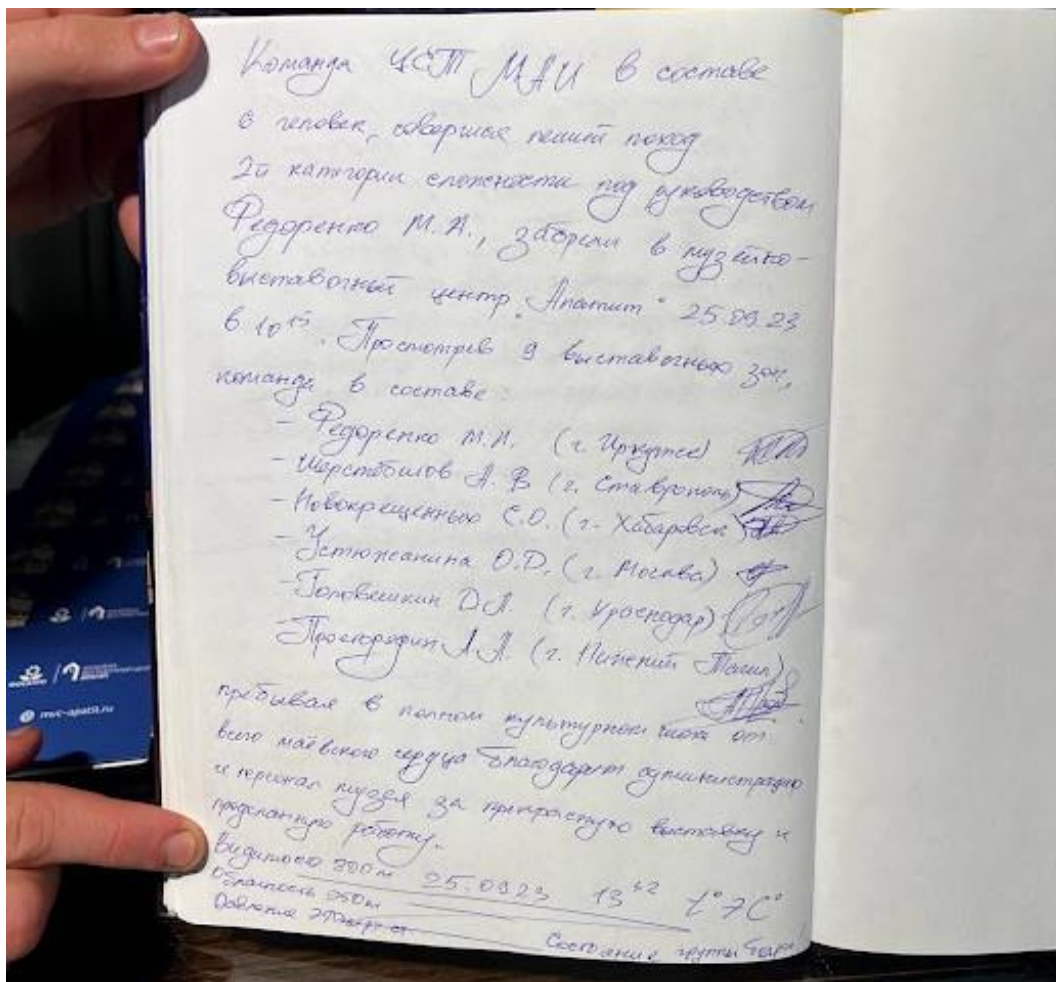 Команда ЦСТ МАИ в составе
6 человек, совершая пеший поход
2й категории сложности под руководством
Федоренко М.А., забрели в музейно-
выставочный центр "Апатит" 25.09.23
в 10 15. Просмотрев 9 выставочных зон,
команда в составе:
- Федоренко М.А. (г. Иркутск)
- Шерстобитов А.В. (г. Ставрополь)
- Новокрещенных С.О. (г. Хабаровск)
- Устюжанина О.Д. (г. Москва)
- Головешкин Д.А. (г. Краснодар)
- А.А. (г. Нижний Тагил)
пребывая в полном культурном шоке от
всего маёвского сердца благодарит администрацию
и персонал музея за прекрасную выставку и
проделанную работу.
Видимость 300м 25.0923 13 42 t° 7C°
Облачность 350м
Давление
Состояние группы
mvc-apatit.ru